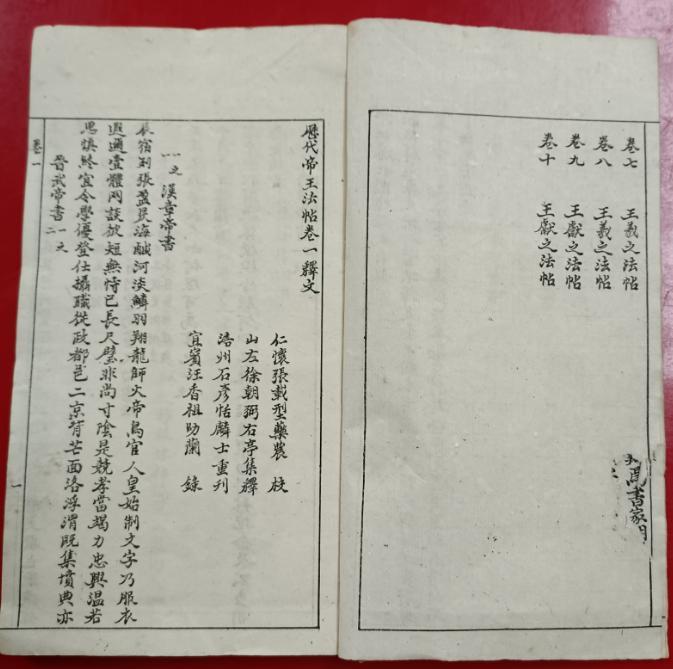 卷七 王羲之法帖
卷八 王羲之法帖
卷九 王獻之法帖
卷十 王獻之法帖
歷代帝王法帖卷一釋文
仁懷張載型藥農 校
山左徐朝弼右亭集釋
涪州石彥恬麟士重刊
宜賓汪香祖助蘭 錄
一之一 漢章帝書
辰宿列張盈昃海鹹河淡鱗羽翔龍師火帝鳥官人皇始制文字乃服衣
遐邇壹體网談彼短無恃已長尺璧非尚寸陰是競孝當竭力忠興溫若
思慎終宜令學優登仕攝職從政都邑二京背芒面洛浮渭既集墳典亦
晉武帝書 一之二
卷一
一